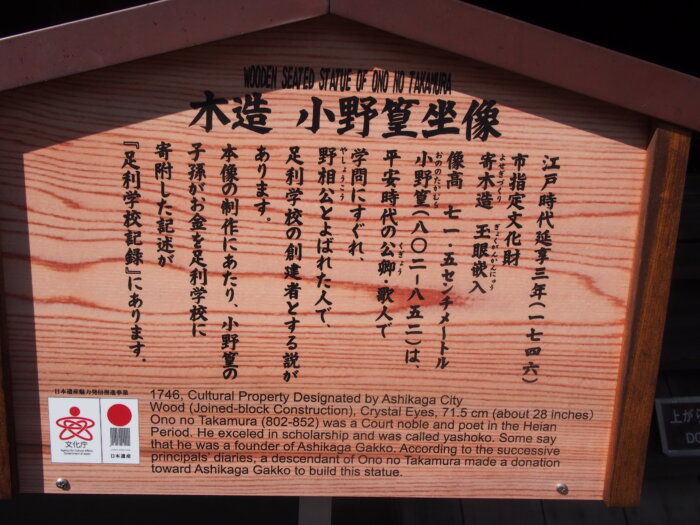 WOODEN SEATED STATUE OF ONO NO TAKAMURA
木造 小野篁坐像
江戸時代延享三年(一七四六)
市指定文化財
寄木造 玉眼嵌入
よせぎづくり ぎょくがんかんにゅう
像高 七一・五センチメートル
小野篁(八〇二-八五二)は、
おののたかむら
平安時代の公卿・歌人で
くぎょう
学問にすぐれ、
野相公とよばれた人で、
やしょうこう
足利学校の創建者とする説が
あります。
本像の制作にあたり、小野篁の
子孫がお金を足利学校に
寄附した記述が
『足利学校記録』にあります。
日本遺産魅力発信推進事業
文化庁
Agency for Cultural Affairs,
Government of Japan
日本遺産
1746, Cultural Property Designated by Ashikaga City
Wood (Joined-block Construction), Crystal Eyes, 71.5 cm (about 28 inches)
Ono no Takamura (802-852) was a Court noble and poet in the Heian
Period. He exceled in scholarship and was called yashoko. Some say
that he was a founder of Ashikaga Gakko. According to the successive
principals' diaries, a descendant of Ono no Takamura made a donation
toward Ashikaga Gakko to build this statue.
上が
DO